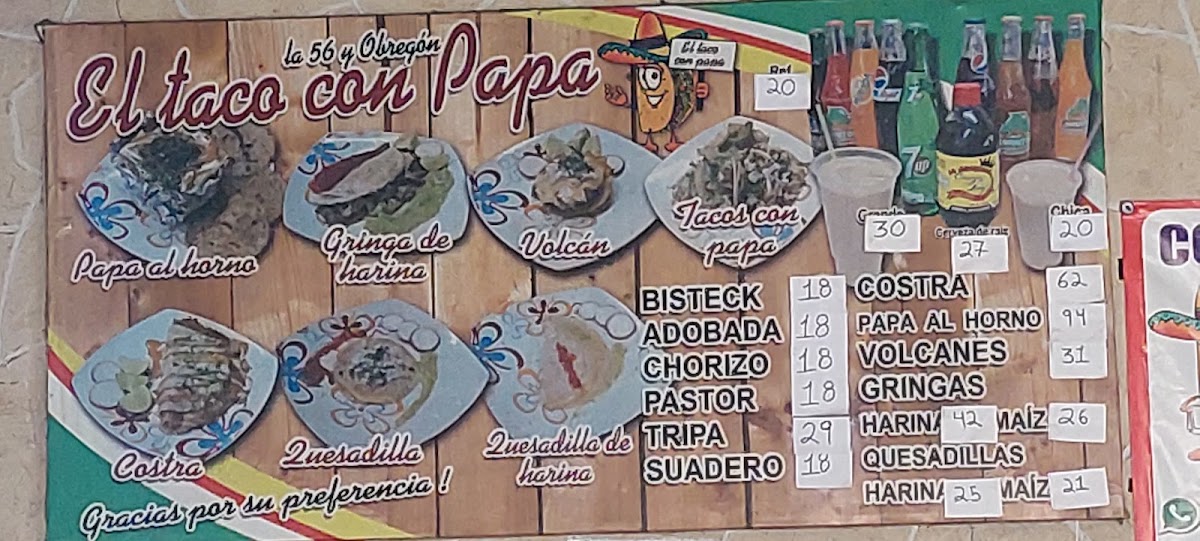 la 56 y Obregón
El taco con Papa
El taco
con papa
Ref
20
Papa al horno
Gringa de
harina
Volcán
Tacos con
papa
Grande
30
Cerveza de raiz
27
Chica
20
Costra
Quesadilla
Quesadilla de
harina
Gracias por su preferencia !
BISTECK 18
ADOBADA 18
CHORIZO 18
PASTOR 18
TRIPA 29
SUADERO 18
COSTRA 62
PAPA AL HORNO 94
VOLCANES 31
GRINGAS
HARINA 42 MAÍZ 26
QUESADILLAS
HARINA 25 MAÍZ 21
7up
CO